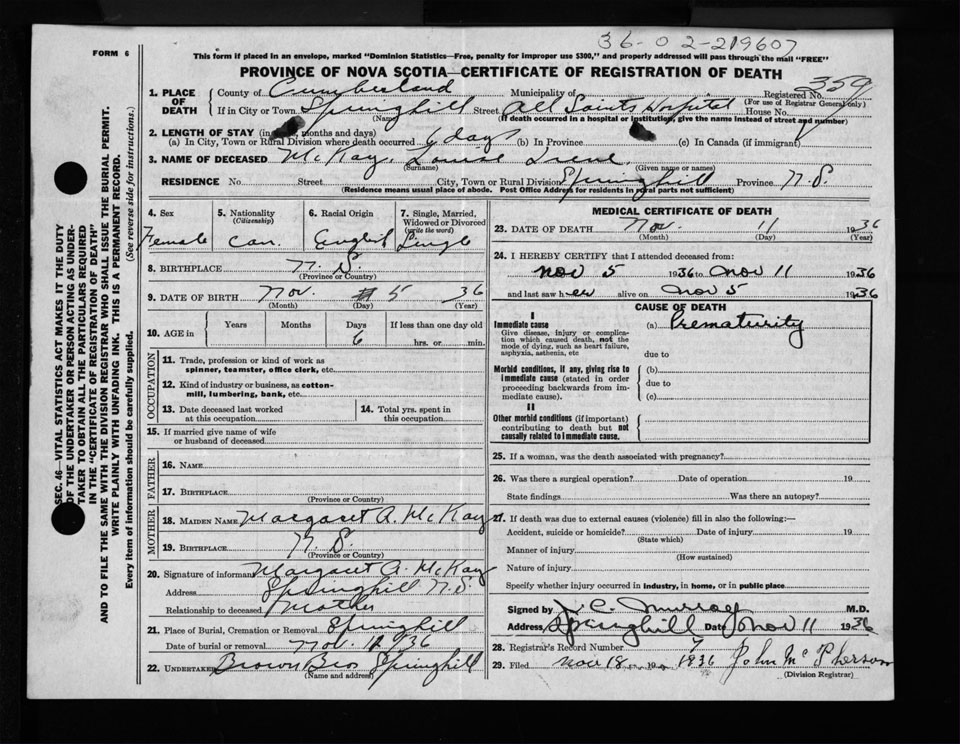 36-02-219607
FORM 6
This form if placed in an envelope, marked "Dominion Statistics—Free, penalty for improper use $300," and properly addressed will pass through the mail "FREE"
PROVINCE OF NOVA SCOTIA—CERTIFICATE OF REGISTRATION OF DEATH
359
1. PLACE OF DEATH
County of Cumberland Municipality of Registered No.
(For use of Registrar General only)
If in City or Town Springhill Street All Saints Hospital House No.
(Name) (If death occurred in a hospital or institution, give the name instead of street and number)
2. LENGTH OF STAY (in years, months and days)
(a) In City, Town or Rural Division where death occurred 6 days (b) In Province (c) In Canada (if immigrant)
3. NAME OF DECEASED McKay, Louise Irene
(Surname) (Given name or names)
RESIDENCE No. Street City, Town or Rural Division Springhill Province N.S.
(Residence means usual place of abode. Post Office Address for residents in rural parts not sufficient)
4. Sex
Female
5. Nationality
(Citizenship)
Can.
6. Racial Origin
English
7. Single, Married,
Widowed or Divorced
(write the word)
Single
8. BIRTHPLACE N.S.
(Province or Country)
9. DATE OF BIRTH Nov. 5 36
(Month) (Day) (Year)
10. AGE in
Years Months Days If less than one day old
6 hrs. or min.
OCCUPATION
11. Trade, profession or kind of work as
spinner, teamster, office clerk, etc.
12. Kind of industry or business, as cotton-
mill, lumbering, bank, etc.
13. Date deceased last worked
at this occupation
14. Total yrs. spent in
this occupation
15. If married give name of wife
or husband of deceased
FATHER
16. NAME
17. BIRTHPLACE
(Province or Country)
MOTHER
18. MAIDEN NAME Margaret A. McKay
19. BIRTHPLACE N.S.
(Province or Country)
20. Signature of informant Margaret A. McKay
Address Springhill N.S
Relationship to deceased Mother
21. Place of Burial, Cremation or Removal Springhill
Date of burial or removal Nov. 1936
22. UNDERTAKER Brown Bros Springhill
(Name and address)
MEDICAL CERTIFICATE OF DEATH
23. DATE OF DEATH Nov. 11 1936
(Month) (Day) (Year)
24. I HEREBY CERTIFY that I attended deceased from:
Nov 5 1936 to Nov 11 1936
and last saw her alive on Nov 5 1936
CAUSE OF DEATH
I
Immediate cause (a) Prematurity
Give disease, injury or complica-
tion which caused death, not the
mode of dying, such as heart failure,
asphyxia, asthenia, etc
due to
Morbid conditions, if any, giving rise to
immediate cause (stated in order
proceeding backwards from im-
mediate cause).
(b)
due to
(c)
II
Other morbid conditions (if important)
contributing to death but not
causally related to immediate cause.
25. If a woman, was the death associated with pregnancy?
26. Was there a surgical operation? Date of operation 19
State findings Was there an autopsy?
27. If death was due to external causes (violence) fill in also the following:—
Accident, suicide or homicide? Date of injury 19
(State which)
Manner of injury
(How sustained)
Nature of injury
Specify whether injury occurred in industry, in home, or in public place
Signed by J. C. Murray M.D.
Address Springhill Date Nov 11 1936
28. Registrar's Record Number
29. Filed Nov 18 1936 John McPherson
(Division Registrar)
SEC. 46—VITAL STATISTICS ACT MAKES IT THE DUTY
OF THE UNDERTAKER OR PERSON ACTING AS UNDER-
TAKER TO OBTAIN ALL THE PARTICULARS REQUIRED
IN THE "CERTIFICATE OF REGISTRATION OF DEATH"
AND TO FILE THE SAME WITH THE DIVISION REGISTRAR WHO SHALL ISSUE THE BURIAL PERMIT.
WRITE PLAINLY WITH UNFADING INK. THIS IS A PERMANENT RECORD.
Every item of information should be carefully supplied. (See reverse side for instructions.)